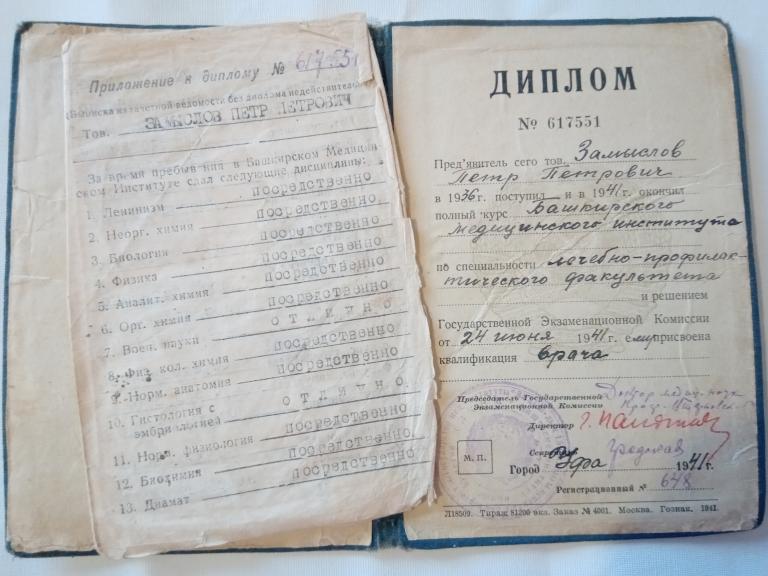 Приложение к диплому № 617551
(Выписка из зачетной ведомости без диплома недействительна)
Тов. ЗАМЫСЛОВ ПЕТР ПЕТРОВИЧ
За время пребывания в Башкирском Медицин-
ском Институте сдал следующие дисциплины:
1. Ленинизм посредственно
2. Неорг. химия посредственно
3. Биология посредственно
4. Физика посредственно
5. Аналит. химия посредственно
6. Орг. химия посредственно
7. Воен. науки отлично
8. Физ. кол. химия посредственно
9. Норм. анатомия посредственно
10. Гистология с
эмбриологией отлично
11. Норм. физиология посредственно
12. Биохимия посредственно
13. Диамат посредственно
ДИПЛОМ
№ 617551
Пред'явитель сего тов. Замыслов
Петр Петрович
в 1936г. поступил и в 1941г. окончил
полный курс Башкирского
медицинского института
по специальности лечебно-профилак-
тического факультета
и решением
Государственной Экзаменационной Комиссии
от 24 июня 1941г. ему присвоена
квалификация врача
Председатель Государственной
Экзаменационной Комиссии
Директор
Секретарь
М. П.
Город Уфа 1941г.
Регистрационный № 648
Л18509. Тираж 81200 экз. Заказ № 4001. Москва. Гознак. 1941.